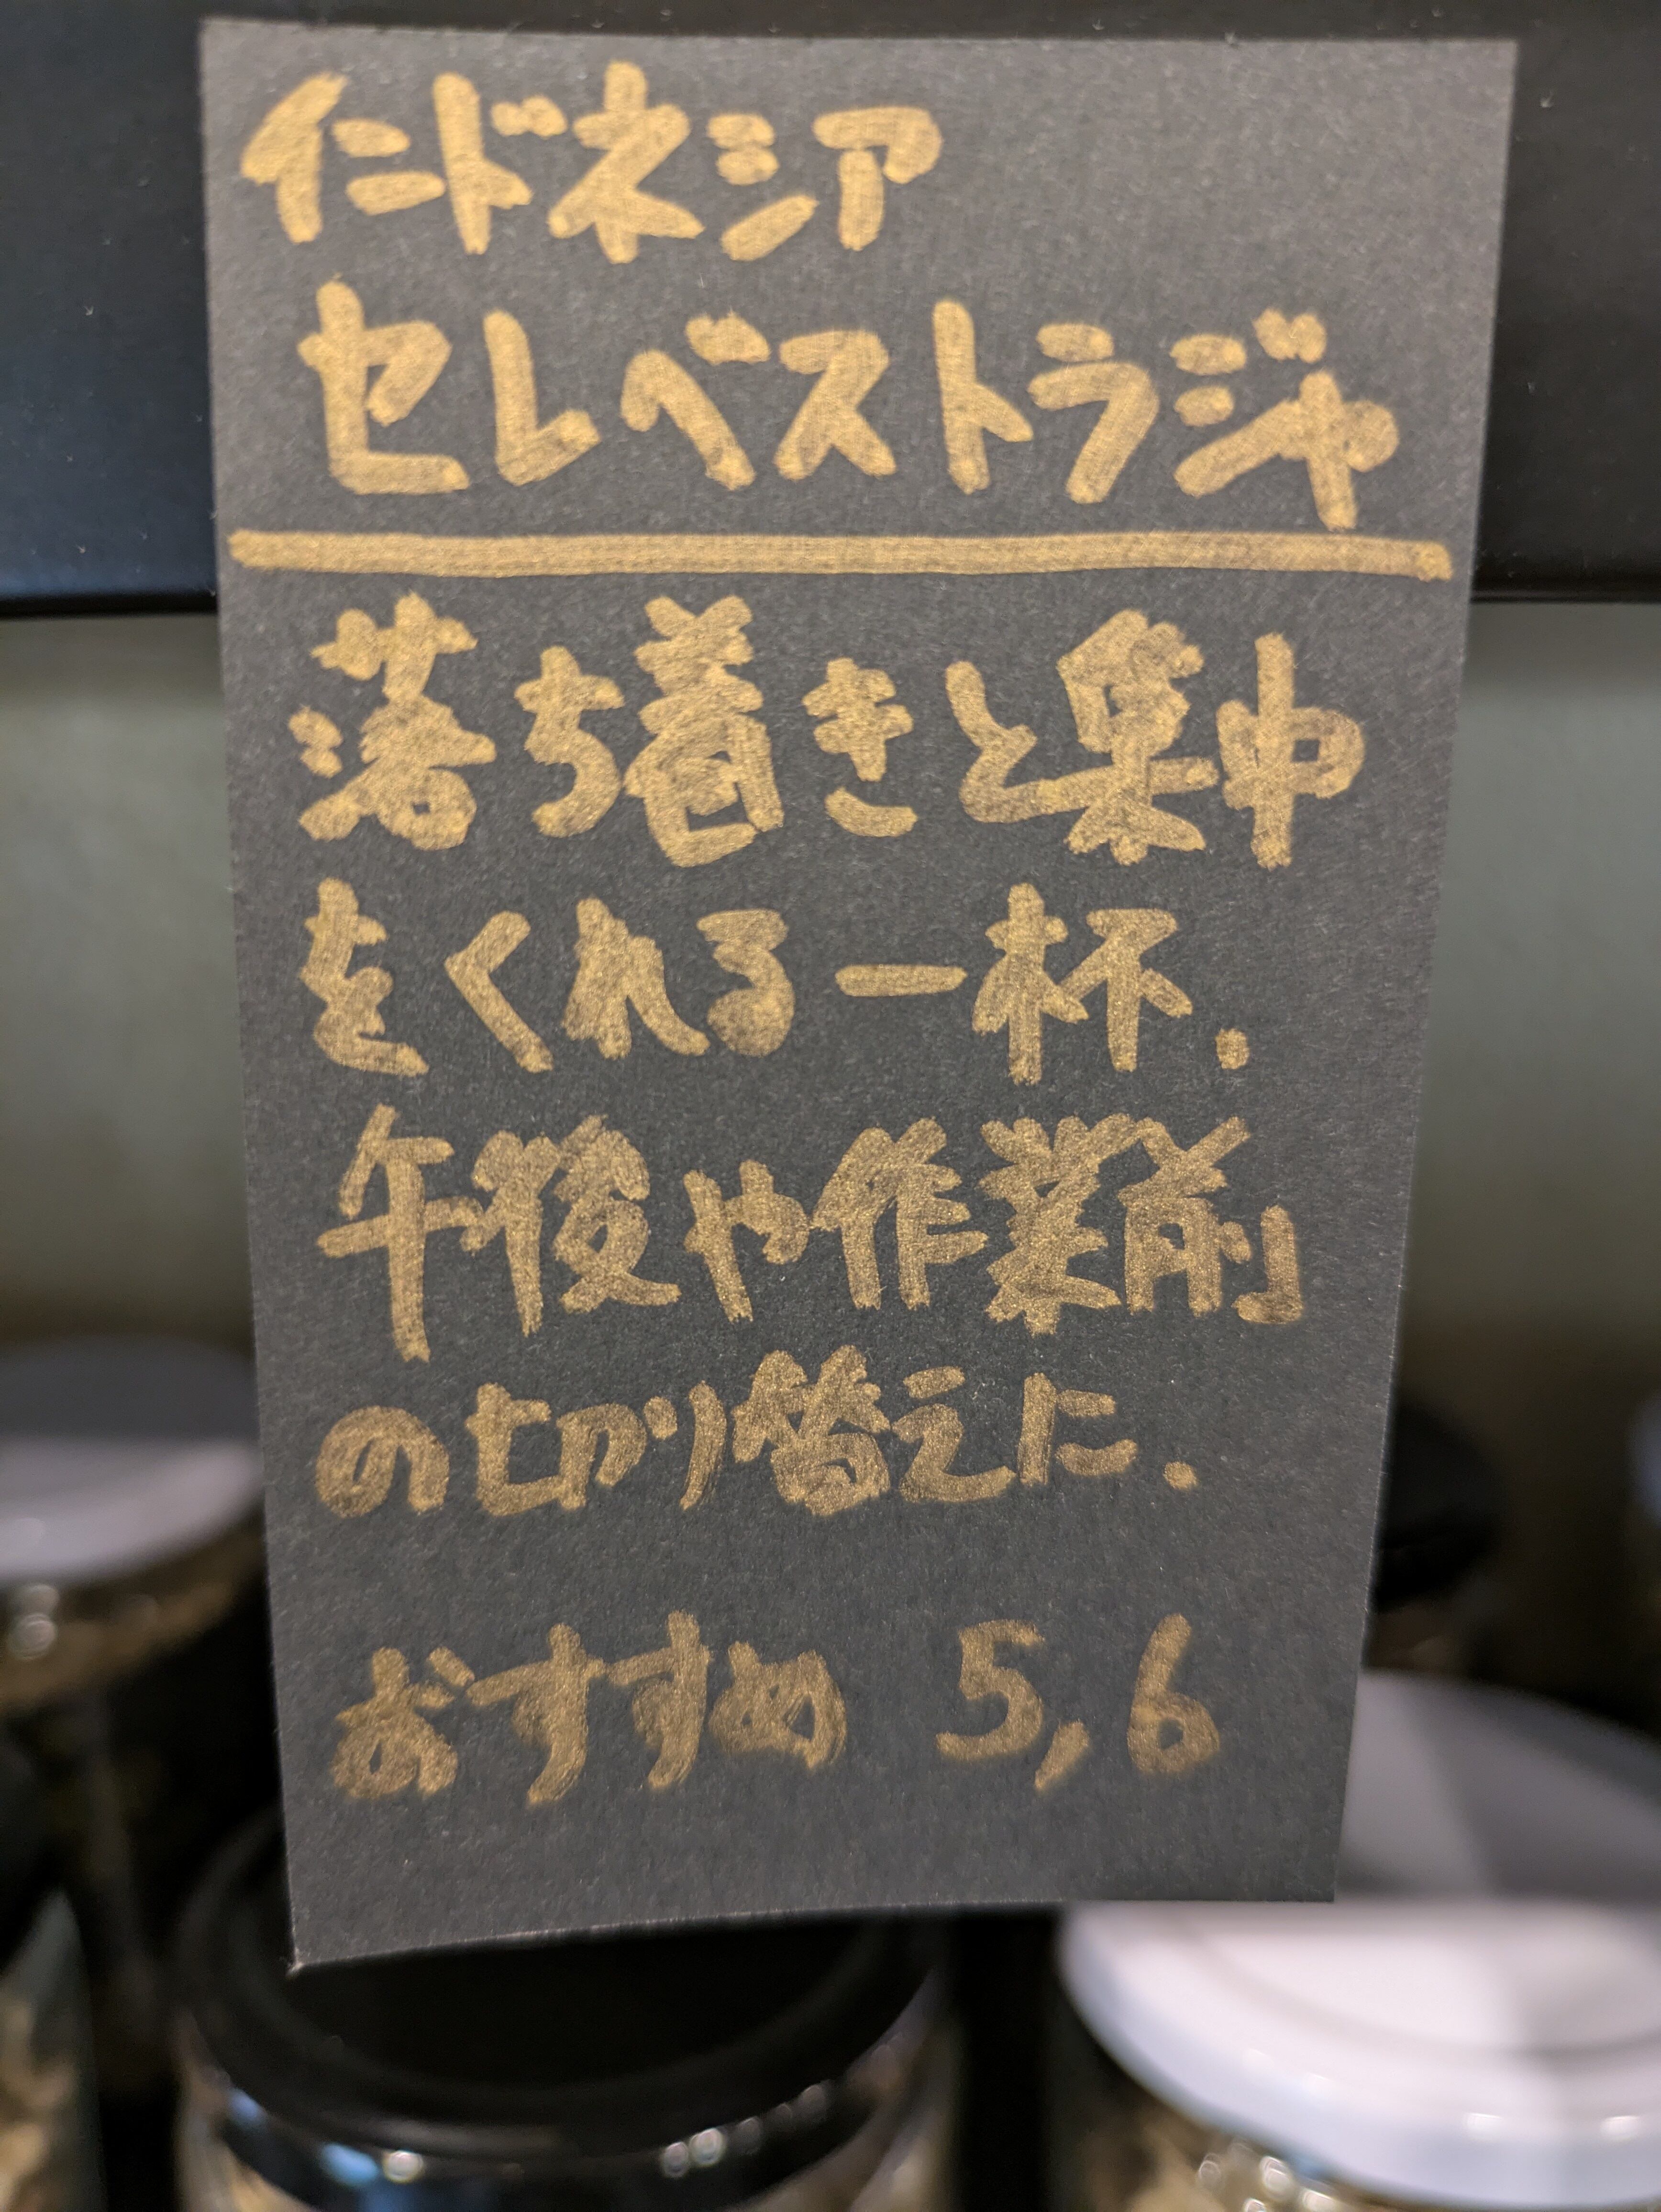 インドネシア
セレベストラジャ
落ち着きと集中
をくれる一杯.
午後や作業前
の切り替えに.
おすすめ 5,6